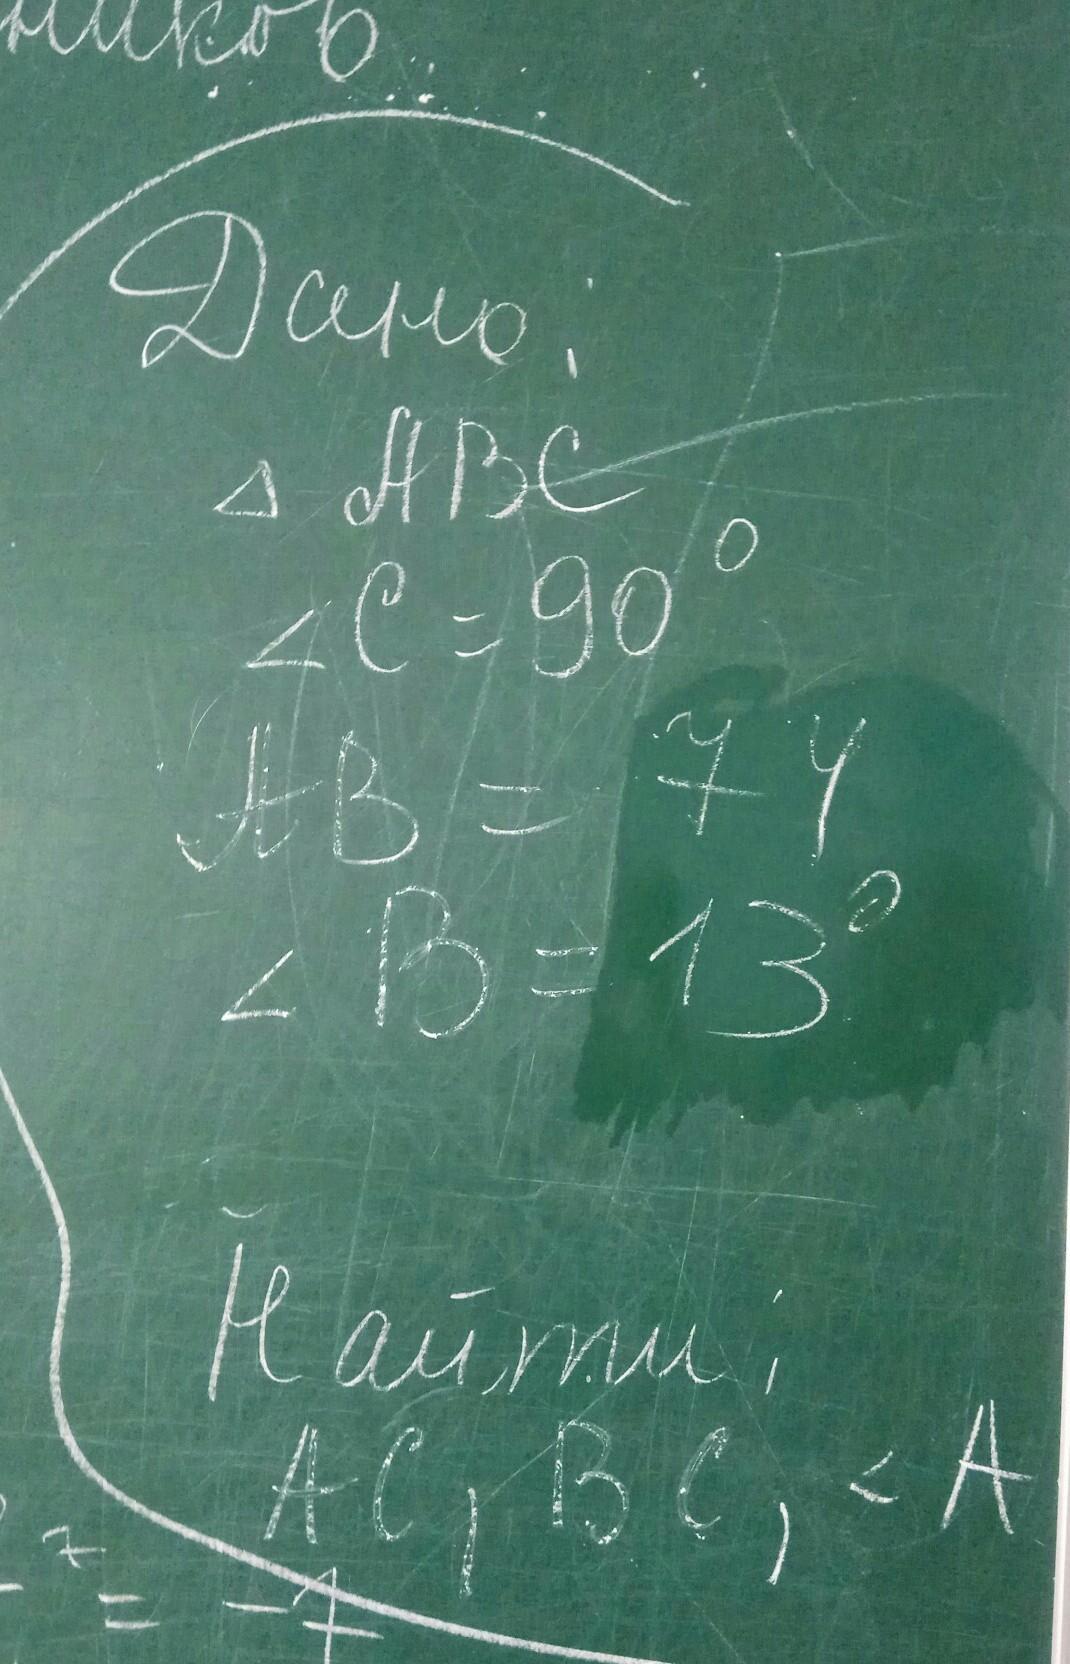 ников
Дано:
△ ABC
∠C = 90°
AB = 74
∠B = 13°
Найти:
AC, BC, ∠A
7
= -7